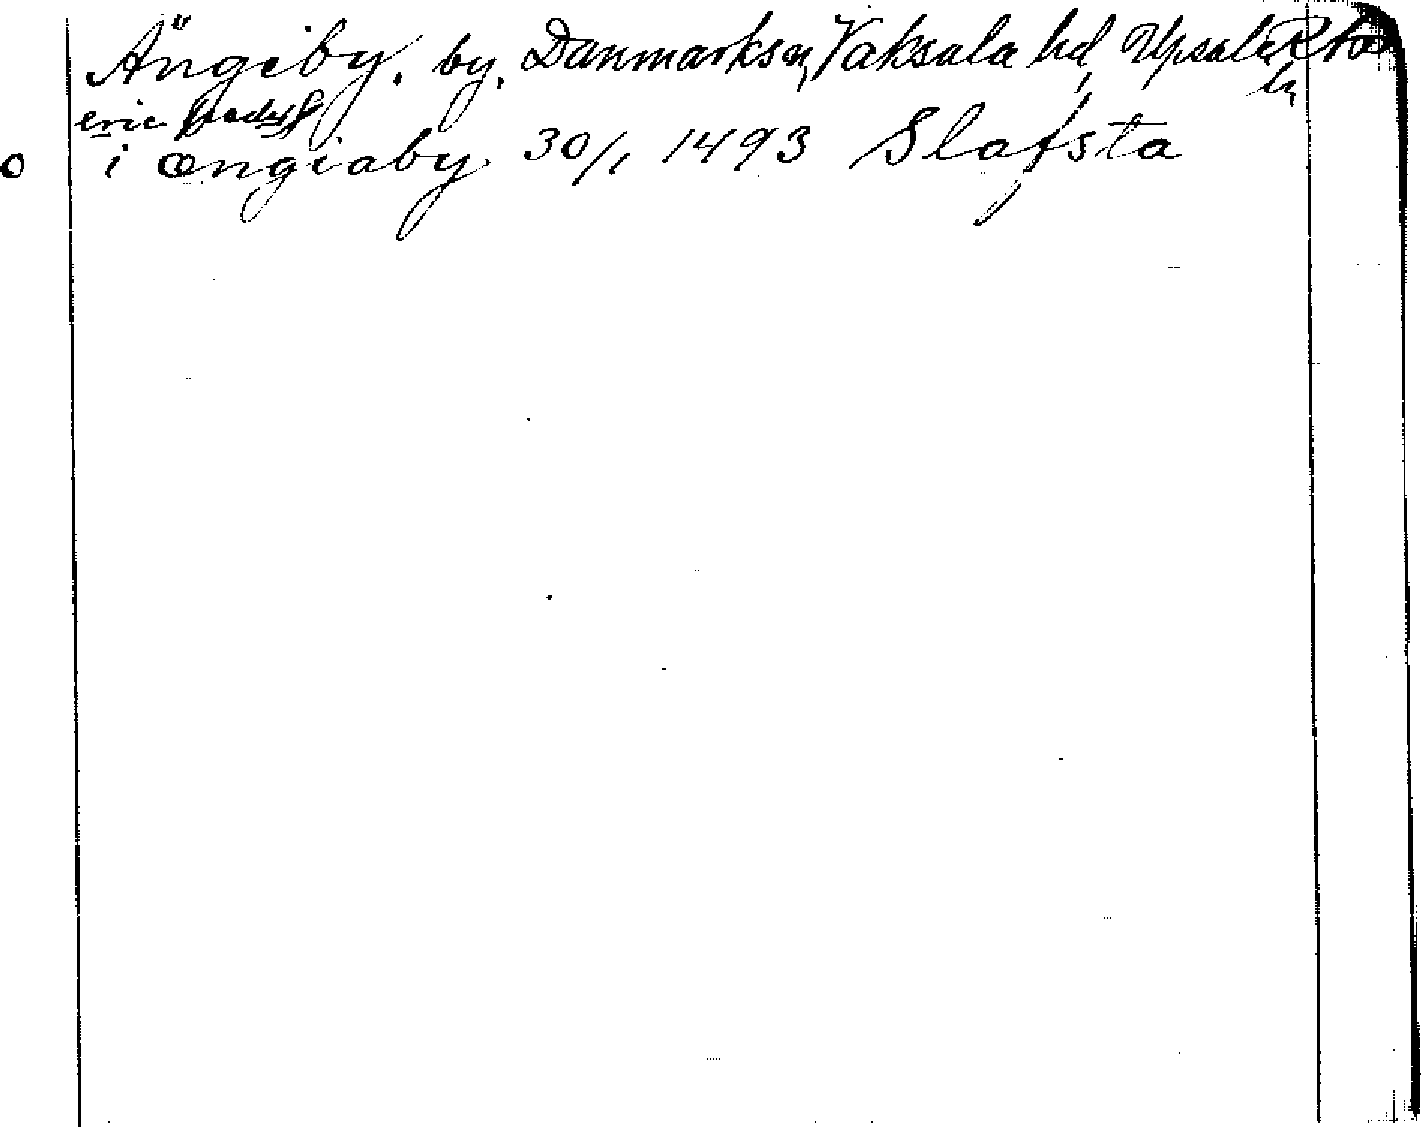 Ängeby. by. Danmarks sn, Vaksala hd, Upsala
ln
eric
o i œngiaby 30/1 1493 Slafsta